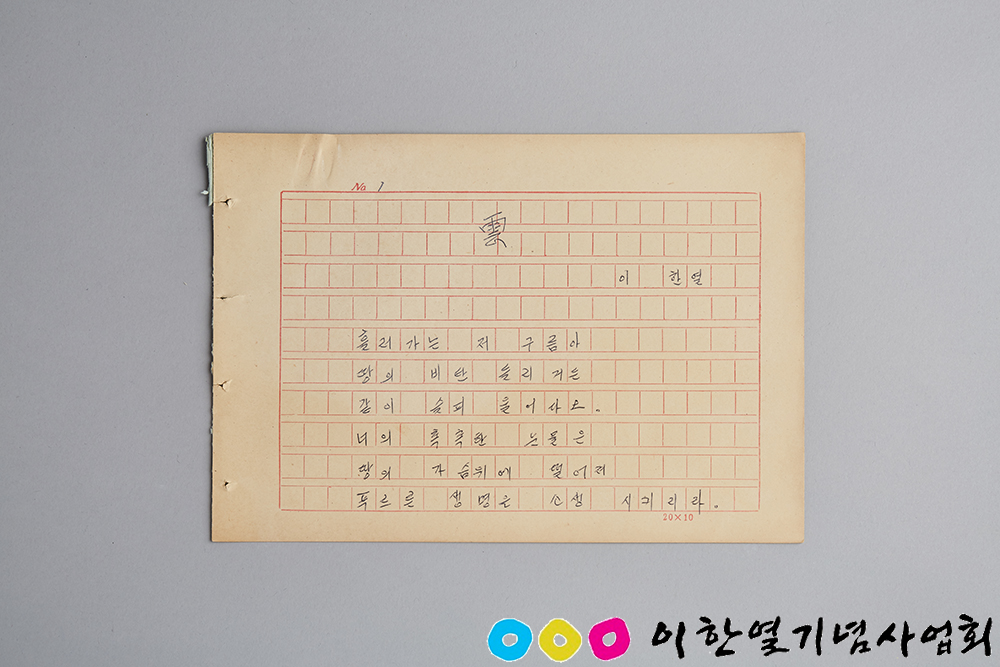 No. 1
雲
이 한열
흘러가는 저 구름아
땅의 비탄 들리거든
같이 슬피 울어다오.
너의 촉촉한 눈물은
땅의 가슴위에 떨어져
푸르른 생명을 소생 시키리라.
20×10
이한열기념사업회